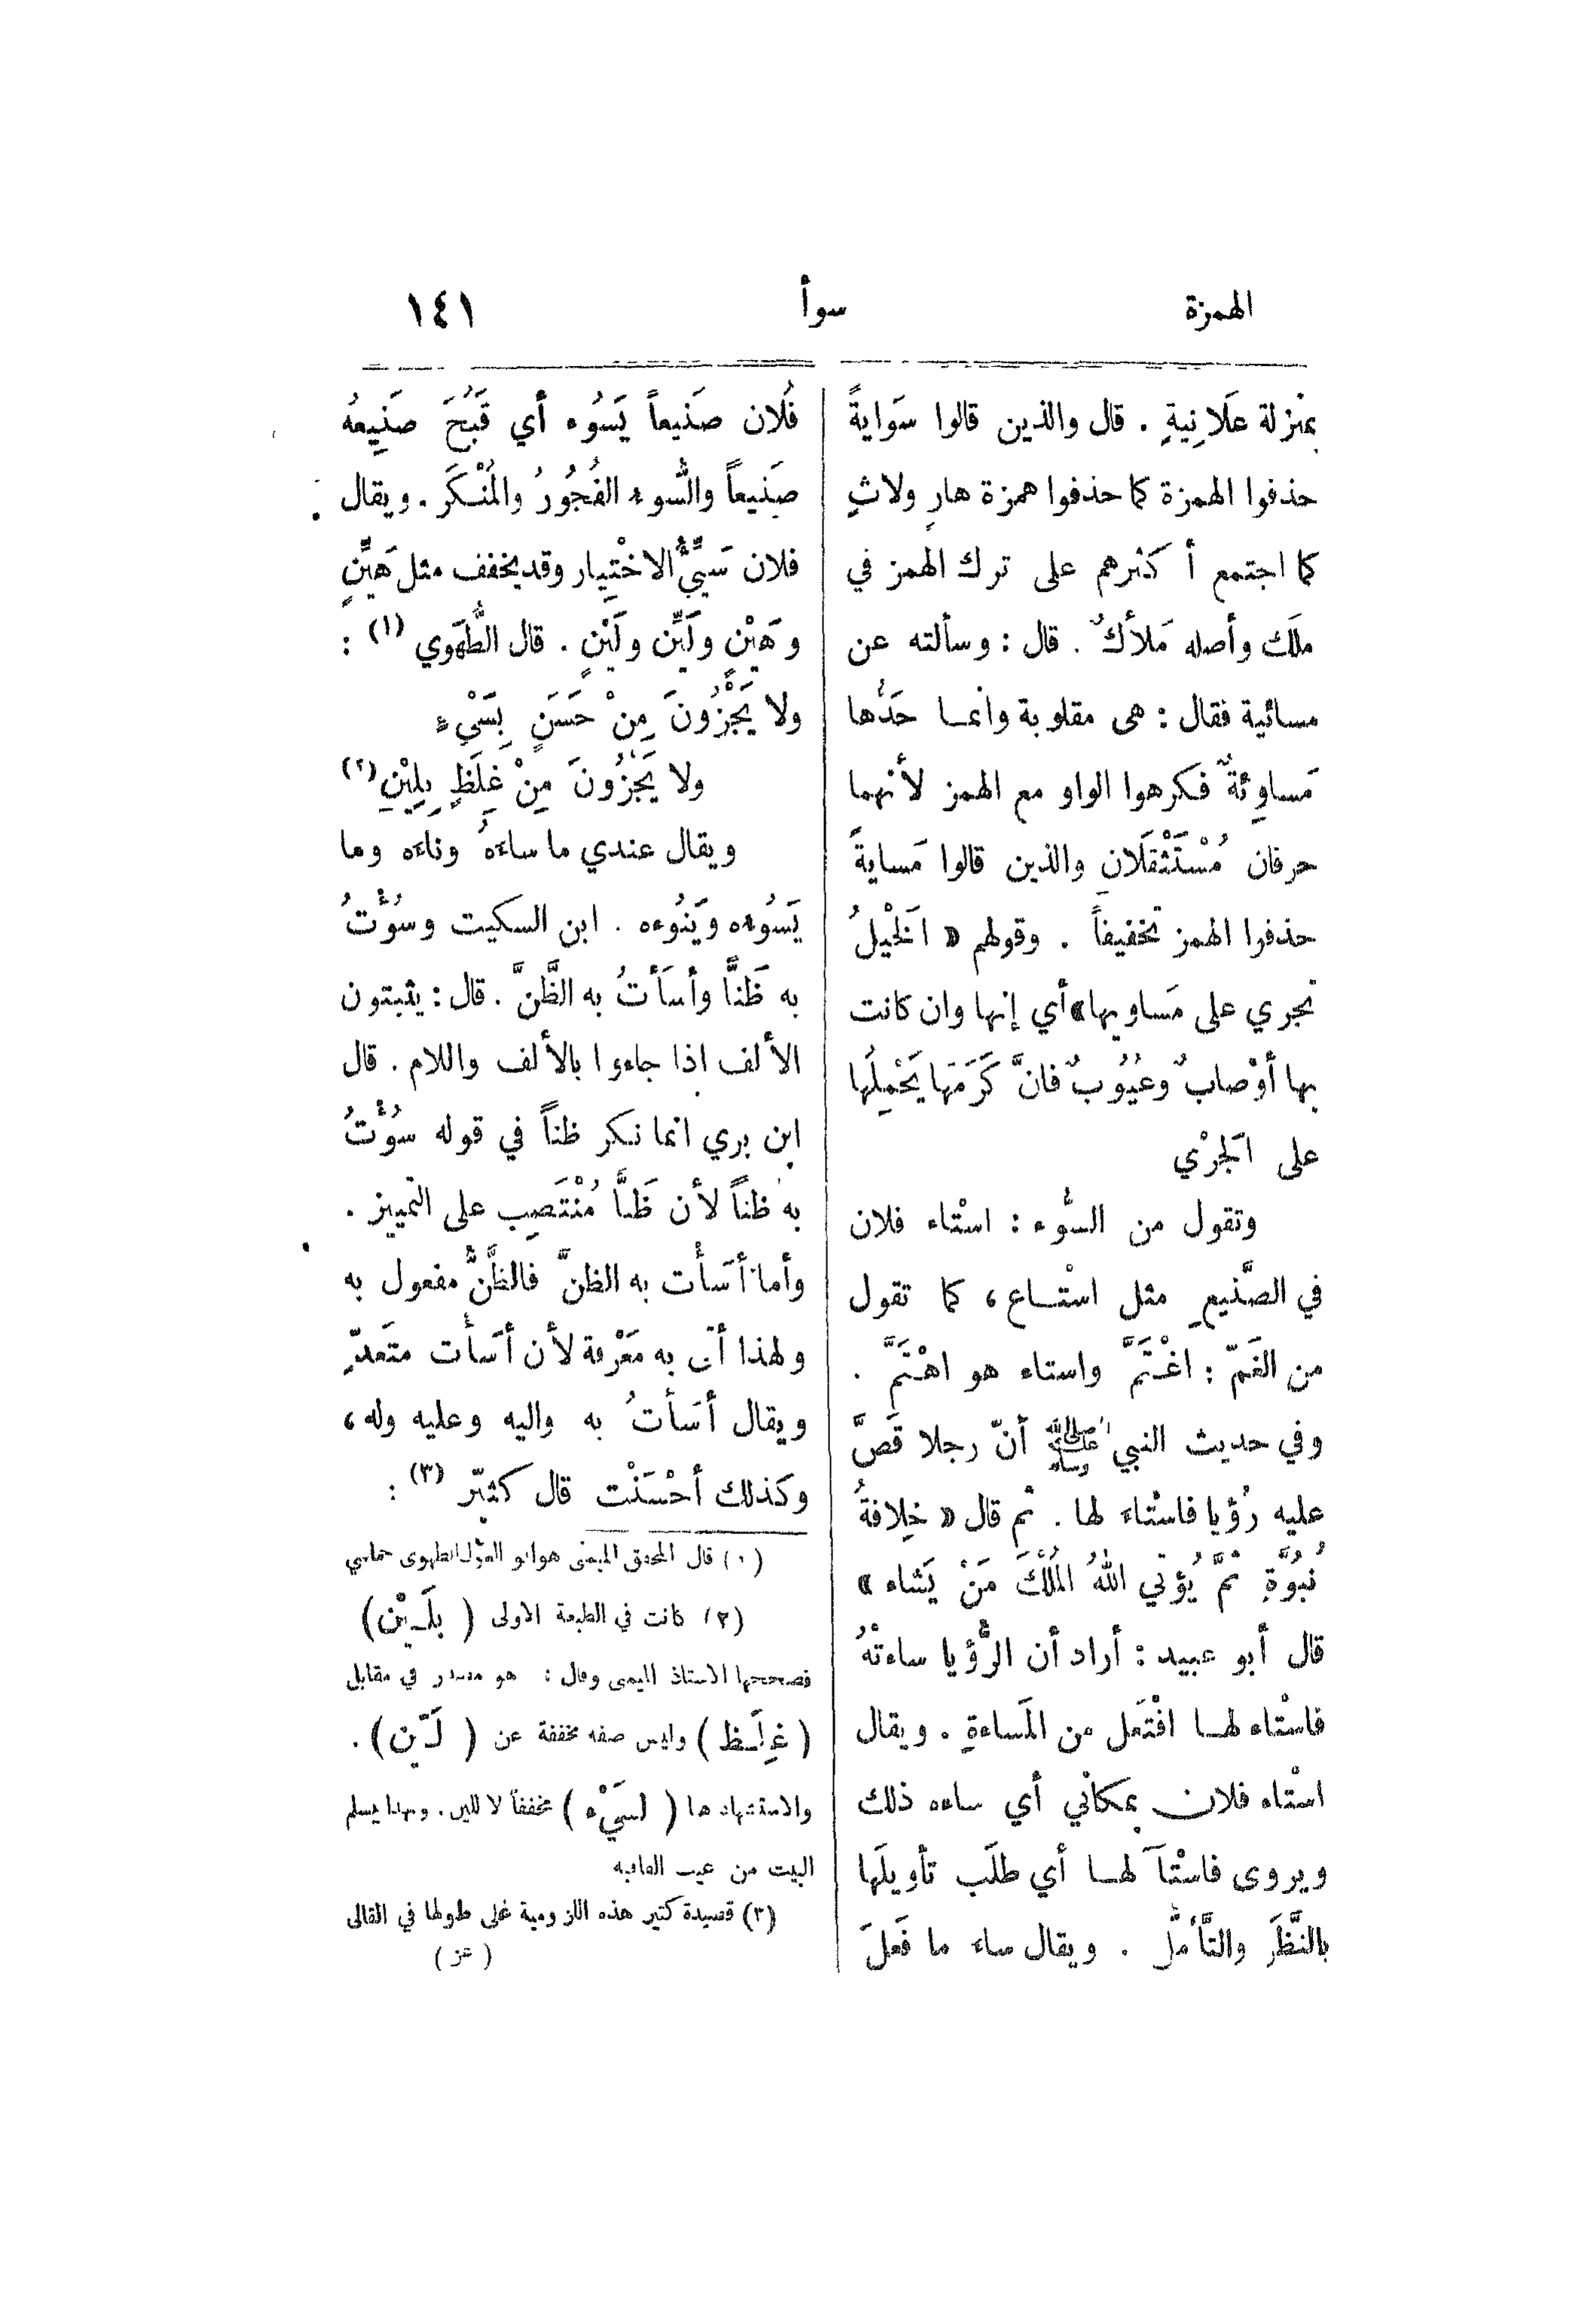 الهمزة
سوأ
١٤١
بمنزلة عَلَانِيةٍ . قال والذين قالوا سَوَايةً
حذفوا الهمزة كما حذفوا همزة هارٍ ولاثٍ
كما اجتمع أكثرهم على ترك الهمز في
ملَك وأصله مَلأكٌ . قال : وسألته عن
مسائية فقال : هى مقلوبة وانمـا حَدُّها
مَساوِئةٌ فكرهوا الواو مع الهمز لأنهما
حرفان مُسْتَثْقَلَانِ والذين قالوا مَسايةً
حذفوا الهمز تخفيفاً . وقولهم « اَلْخَيْلُ
تجري على مَساويها » أي إنها وان كانت
بها أوْصابٌ وعُيُوبٌ فانَّ كَرَمَها يَحْمِلُها
على اَلْجَرْي
وتقول من السُّوء : اسْتاء فلان
في الصَّنيعِ مثل استـاع ، كما تقول
من الغَمّ : اغْتَمَّ واستاء هو اهْتَمَّ .
وفي حديث النبي ﷺ أنّ رجلا قَصَّ
عليه رُؤيا فاسْتاءَ لها . ثم قال « خِلافةُ
نُبُوَّةٍ ثمَّ يُؤتي اللهُ المُلْكَ مَنْ يَشاء »
قال أبو عبيد : أراد أن الرُّؤيا ساءتْهُ
فاسْتاء لهـا افْتَعل من المَساءةِ . ويقال
اسْتاء فلان بمكاني أي ساءه ذلك
ويروى فاسْتَآ لهـا أي طلَب تأويلَها
بالنَّظَرِ والتَّأمُّل . ويقال ساء ما فَعلَ
فُلان صَنيعاً يَسُوء أي قَبُحَ صَنِيعُه
صَنيعاً والسُّوء الفُجُورُ والمُنْكَر . ويقال
فلان سَيِّئُ الاخْتِيار وقد يخفف مثل هَيِّنٍ
وهَيْنٍ ولَيِّن ولَيْنٍ . قال الطُّهَوي (١) :
ولا يَجْزُونَ مِنْ حَسَنٍ بِسَيْءٍ
ولا يَجْزُونَ مِنْ غِلَظٍ بِلِيْنِ (٢)
ويقال عندي ما ساءَهُ وناءَه وما
يَسُوءه ويَنُوءه . ابن السكيت وسُؤْتُ
به ظَنَّاً وأسَأتُ به الظَّنَّ . قال : يثبتون
الألف اذا جاءوا بالألف واللام . قال
ابن بري انما نكر ظناً في قوله سُؤْتُ
به ظناً لأن ظَنَّاً مُنْتَصِب على التمييز .
وأما أسَأْت به الظنَّ فالظَّنُّ مفعول به
ولهذا أتى به مَعْرفة لأن أسَأْت متَعدٍّ
ويقال أسَأْتُ به واليه وعليه وله ،
وكذلك أحْسَنْت قال كثيّر (٣) :
(١) قال المحقق الميمنى هو ابو الغول الطهوى حماسي
(٢) كانت في الطبعة الاولى ( بلَـيْن )
فصححها الاستاذ الميمنى وقال : هو مصدر في مقابل
( غِلَـظ ) وليس صفه مخففة عن ( لَيّن ) .
والاستشهاد ها ( لسَيْء ) مخففاً لا للين . وبهذا يسلم
البيت من عيب القافيه
(٣) قصيدة كثير هذه اللزومية على طولها في القالى
( عز )